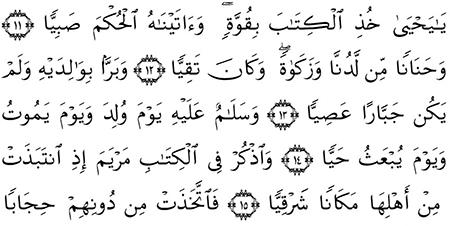 يَـٰيَحۡيَىٰ خُذِ ٱلۡكِتَـٰبَ بِقُوَّةٍۖ وَءَاتَيۡنَـٰهُ ٱلۡحُكۡمَ صَبِيًّا ۝١١
وَحَنَانًا مِّن لَّدُنَّا وَزَكَوٰةًۖ وَكَانَ تَقِيًّا ۝١٢ وَبَرًّۢا بِوَٰلِدَيۡهِ وَلَمۡ
يَكُن جَبَّارًا عَصِيًّا ۝١٣ وَسَلَـٰمٌ عَلَيۡهِ يَوۡمَ وُلِدَ وَيَوۡمَ يَمُوتُ
وَيَوۡمَ يُبۡعَثُ حَيًّا ۝١٤ وَٱذۡكُرۡ فِى ٱلۡكِتَـٰبِ مَرۡيَمَ إِذِ ٱنتَبَذَتۡ
مِنۡ أَهۡلِهَا مَكَانًا شَرۡقِيًّا ۝١٥ فَٱتَّخَذَتۡ مِن دُونِهِمۡ حِجَابًا